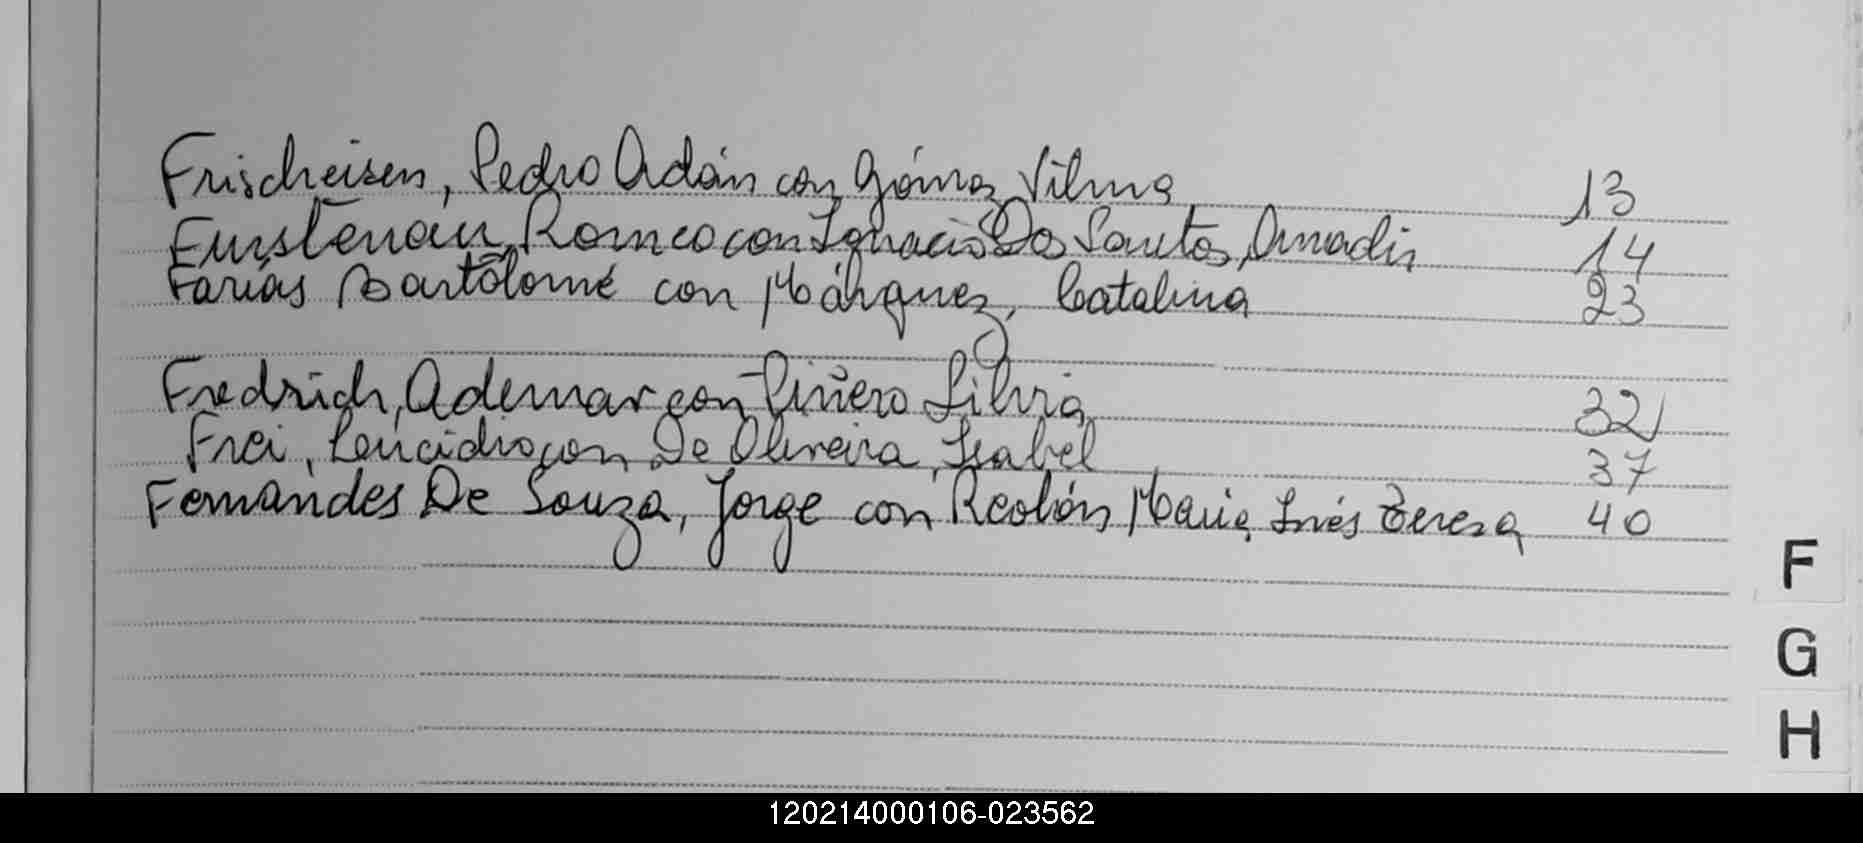 Frischeisen, Pedro Adán con Gómez Vilma 13
Romeo con Ignacio Dos Santos, Amadis 14
Farias Bartolomé con Márquez, Catalina 23
Fredrich, Ademar con Piñero Silvia 32
Frei, Leucidio con De Oliveira, Isabel 37
Fernandes De Souza, Jorge con Reolón Maria Inés Tereza 40
F
G
H
120214000106-023562